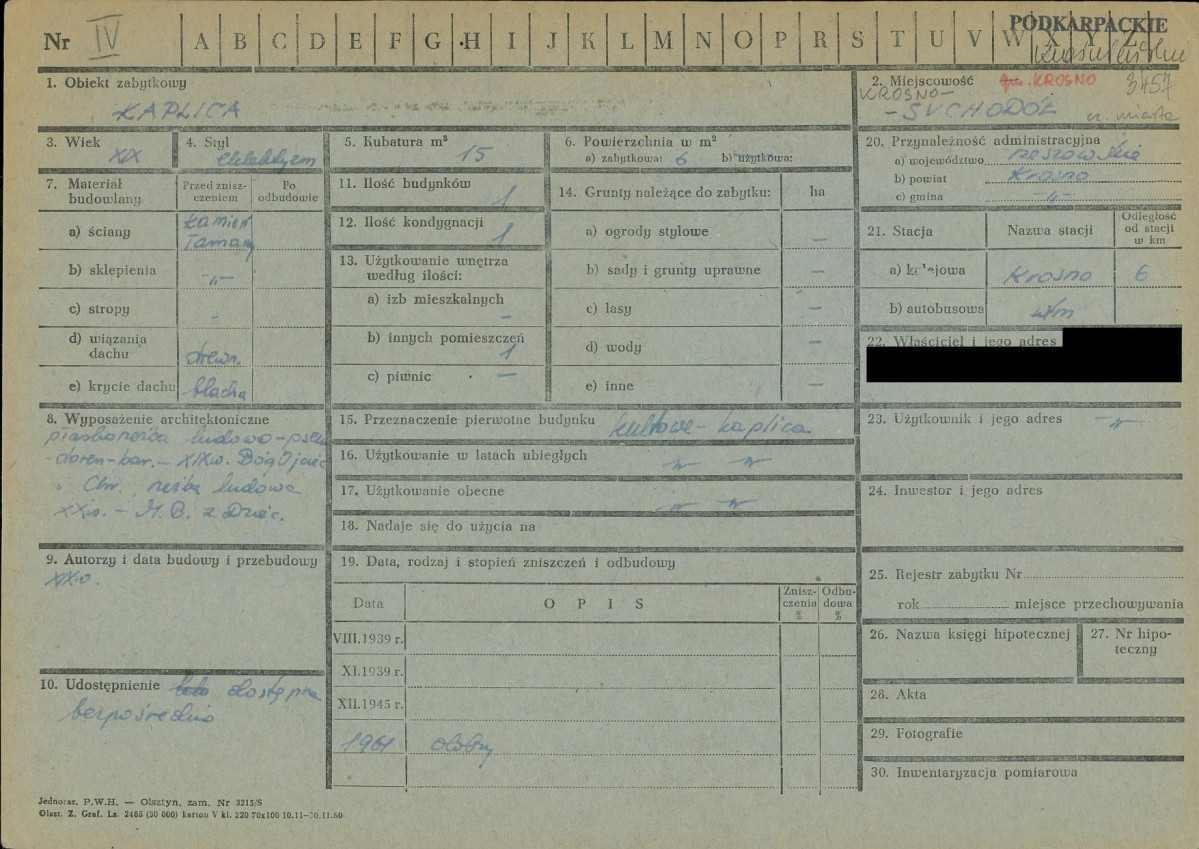 Nr IV A B C D E F G H I J K L M N O P R S T U V W X Y Z
PODKARPACKIE
1. Obiekt zabytkowy
KAPLICA
2. Miejscowość gm. KROSNO 3457
KROSNO-
- SUCHODÓŁ cz. miasta
3. Wiek
XIX
4. Styl
eklektyzm
5. Kubatura m³
15
6. Powierzchnia w m²
a) zabytkowa: 6 b) użytkowa:
7. Materiał budowlany
Przed zniszczeniem
Po odbudowie
a) ściany
kamień
łamany
b) sklepienia -„-
c) stropy -
d) wiązania
dachu drewn.
e) krycie dachu blacha
11. Ilość budynków 1
12. Ilość kondygnacji 1
13. Użytkowanie wnętrza
według ilości:
a) izb mieszkalnych -
b) innych pomieszczeń 1
c) piwnic —
14. Grunty należące do zabytku: ha
a) ogrody stylowe —
b) sady i grunty uprawne —
c) lasy —
d) wody —
e) inne —
20. Przynależność administracyjna
a) województwo rzeszowskie
b) powiat Krosno
c) gmina -„-
21. Stacja Nazwa stacji
Odległość
od stacji
w km
a) kolejowa Krosno 6
b) autobusowa
22. Właściciel i jego adres
8. Wyposażenie architektoniczne
płaskorzeźba ludowo-pseu
- XIXw. Bóg Ojciec
i Chr., rzeźba ludowa
XXw. - M. B. z Dziec.
9. Autorzy i data budowy i przebudowy
XIXw.
10. Udostępnienie dostępna
bezpośrednio
15. Przeznaczenie pierwotne budynku kultowe - kaplica
16. Użytkowanie w latach ubiegłych -„- -„-
17. Użytkowanie obecne -„- -„-
18. Nadaje się do użycia na
19. Data, rodzaj i stopień zniszczeń i odbudowy
Data
O P I S
Znisz-
czenia
%
Odbu-
dowa
%
VIII.1939 r.
XI.1939 r.
XII.1945 r.
1961 dobry
23. Użytkownik i jego adres -„-
24. Inwestor i jego adres
25. Rejestr zabytku Nr
rok miejsce przechowywania
26. Nazwa księgi hipotecznej
27. Nr hipo-
teczny
28. Akta
29. Fotografie
30. Inwentaryzacja pomiarowa
Jednoraz. P.W.H. — Olsztyn, zam. Nr 3215/S
Olszt. Z. Graf. Lz. 2485 (30 000) karton V kl. 220 70x100 10.11-30.11.60